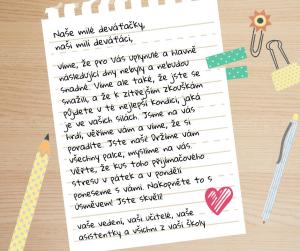 Naše milé deváťačky,
naši milí deváťáci,
víme, že pro Vás uplynulé a hlavně
následující dny nebyly a nebudou
snadné. Víme ale také, že jste se
snažili, a že k zítřejším zkouškám
půjdete v té nejlepší kondici, jaká
je ve vašich silách. Jsme na vás
hrdí, věříme vám a víme, že si
poradíte. Jste naši! Držíme vám
všechny palce, myslíme na vás.
Věřte, že kus toho přijímačového
stresu v pátek a v pondělí
poneseme s vámi. Nakopněte to s
úsměvem! Jste skvělí!
vaše vedení, vaši učitelé, vaše
asistentky a všichni z vaší školy